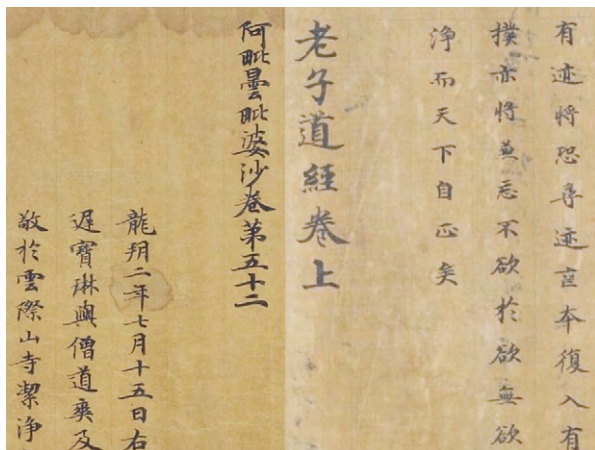 有迹将恐尋迹亡本復入有
撲亦将兼忘不欲於欲無欲
浄而天下自正矣
老子道經卷上
阿毗曇毗婆沙卷第五十二
龍朔二年七月十五日右
遲寳琳與僧道爽及
敬於雲際山寺潔浄